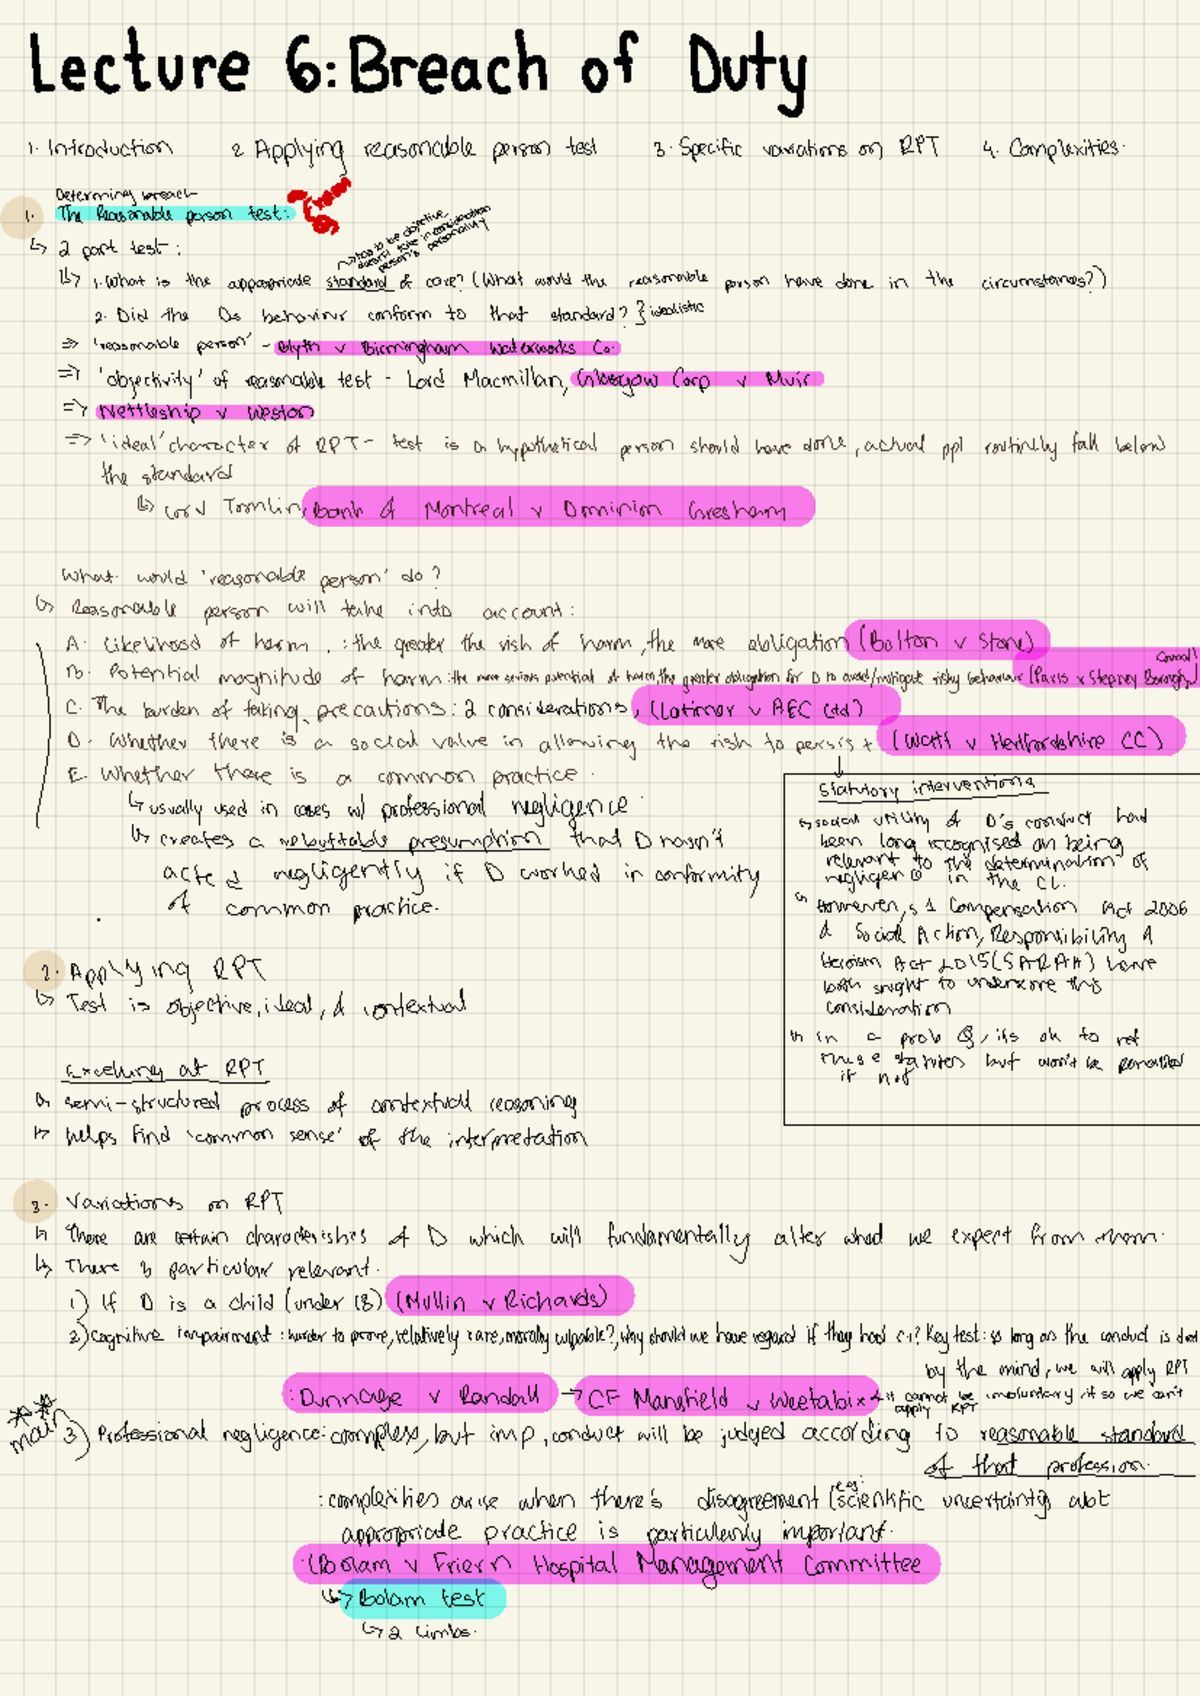 Lecture 6: Breach of Duty
1. Introduction 2 Applying reasonable person test 3. Specific variations on RPT 4. Complexities.
Determining breach
1. The Reasonable person test:
↳ 2 part test:
→ has to be objective,
doesn't take in consideration
person's personality
↳ 1. What is the appropriate standard of care? (What would the reasonable person have done in the circumstances?)
2. Did the Ds behaviour conform to that standard? } idealistic
⇒ 'reasonable person' - Blyth v Birmingham Waterworks Co.
⇒ 'objectivity' of reasonable test - Lord Macmillan, Glasgow Corp v Muir
⇒ Nettleship v Weston
⇒ 'ideal' character of RPT - test is a hypothetical person should have done, actual ppl routinely fall below
the standard
↳ Lord Tomlin, Bank of Montreal v Dominion Gresham
What would 'reasonable person' do?
↳ Reasonable person will take into account:
A. Likelihood of harm. : the greater the risk of harm, the more obligation (Bolton v Stone)
B. Potential magnitude of harm: the more serious potential of harm, the greater obligation for D to avoid/mitigate risky behaviour (Paris v Stepney Borough
Council)
C. The burden of taking precautions: 2 considerations, (Latimer v AEC Ltd)
D. Whether there is a social value in allowing the risk to persist (Watt v Hertfordshire CC)
E. Whether there is a common practice.
↳ usually used in cases w/ professional negligence
↳ creates a rebuttable presumption that D hasn't
acted negligently if D worked in conformity
of common practice.
Statutory interventions
↳ social utility of D's conduct had
been long recognised on being
relevant to the determination of
negligence in the CL.
↳ However, s 1 Compensation Act 2006
& Social Action, Responsibility &
Heroism Act 2015 (SARAH) have
both sought to underscore this
consideration
↳ in a prob Q, its ok to ref
these statutes but won't be penalised
if not
2. Applying RPT
↳ Test is objective, ideal, & contextual
Excelling at RPT
↳ semi-structured process of contextual reasoning
↳ helps find 'common sense' of the interpretation
3. Variations on RPT
↳ There are certain characteristics of D which will fundamentally alter what we expect from them.
↳ There 3 particular relevant.
1) If D is a child (under 18) (Mullin v Richards)
2) Cognitive impairment: harder to prove, relatively rare, morally culpable?, why should we have regard if they had C.I? Key test: so long as the conduct is done
by the mind, we will apply RPT
: Dunnage v Randall → CF Mansfield v Weetabix
it cannot be involuntary, if so we can't
apply RPT
main 3) Professional negligence: complex, but imp, conduct will be judged according to reasonable standard
of that profession.
: complexities arise when there's disagreement (eg: scientific uncertainty) abt
appropriate practice is particularly important.
(Bolam v Friern Hospital Management Committee
↳ Bolam test
↳ 2 limbs.